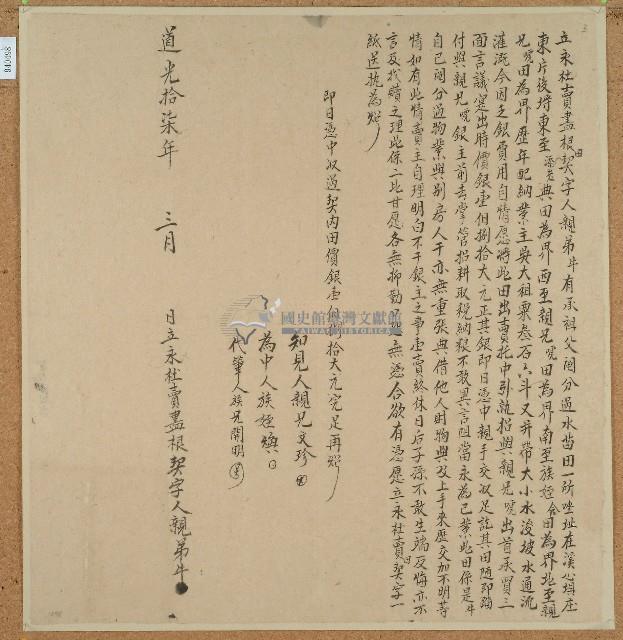 立永杜賣盡根田契字人親弟牛有承祖父鬮分過水田一所坐址在溪心埧庄
東片後埒東至典田為界西至親兄田為界南至族姪田為界北至親
兄田為界歷年配納業主吳大租粟叁石六斗又并帶大小水浚坡水通流
灌溉今因乏銀費用自情愿將此田出賣托中引就招與親兄出首承買三
面言議定出時價銀壹佰捌拾大元正其銀即日憑中親手交收足訖其田隨即踏
付與親兄銀主前去掌管招耕取稅納租不敢異言阻當永為己業此田係是牛
自己鬮分過物業與別房人干亦無重張典借他人財物與及上手來歷交加不明等
情如有此情賣主自理明白不干銀主之事壹賣終休日后子孫不敢生端反悔亦不
言及找贖之理此係二比甘愿各無抑勒無憑合欲有憑愿立永杜賣田契字一
紙送執為炤
即日憑中收過契內田價銀壹佰捌拾大元完足再炤
知見人親兄文珍
為中人族姪
代筆人族兄開明
道光拾柒年 三月 日立永杜賣盡根契字人親弟牛
國史館臺灣文獻館
TAIWAN HISTORICA